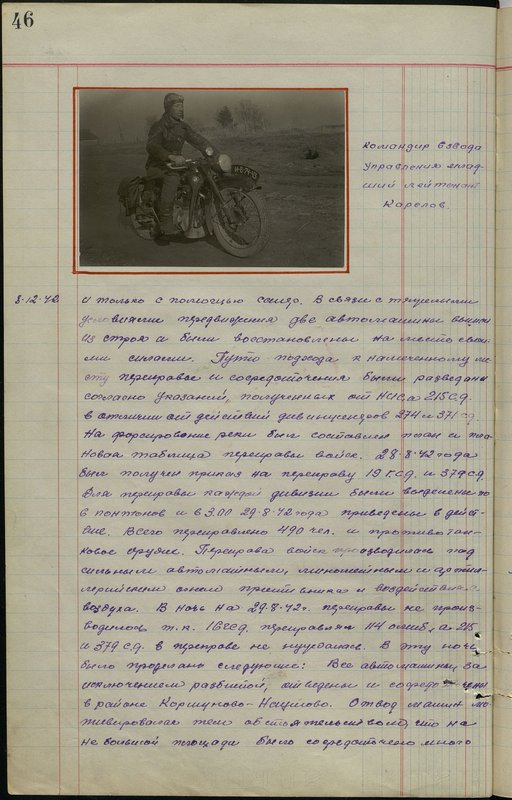 46
Командир взвода
Управления млад-
ший лейтенант
Карелов.
8.12.42
и только с помощью сапер. В связи с тяжелыми
условиями передвижения две автомашины вышли
из строя и были восстановлены на месте свои-
ми силами. Пути подхода к намеченному ме
сту переправ и сосредоточения были разведаны
согласно указаний, полученных от НИСа 215 С.Д.
в отличии от действий дивинженеров 274 и 371 СД
На форсирование реки был составлен план и пла-
новая таблица переправы войск. 28.8.42 года
был получен приказ на переправу 19 Г.С.Д. и 379 С.Д.
Для переправы каждой дивизии были выделены по
6 понтонов и в 3.00 29.8.42 года приведены в дейст-
вие. Всего переправлено 490 чел. и противотан-
ковое орудие. Переправа войск производилась под
сильным автоматным, минометным и артил-
лерийским огнем противника и воздействием
воздуха. В ночь на 29.8.42г. переправы не произ-
водилось т.к. 16 ГСД. переправлял 114 а 215
и 379 С.Д. в переправе не нуждалась. В эту ночь
было проделано следующие: Все автомашины, за
исключением разбитой, отведены и сосредоточены
в районе Коршуково- Отвод машин мо-
тивировался тем обстоятельством, что на
не большой площади было сосредоточено много